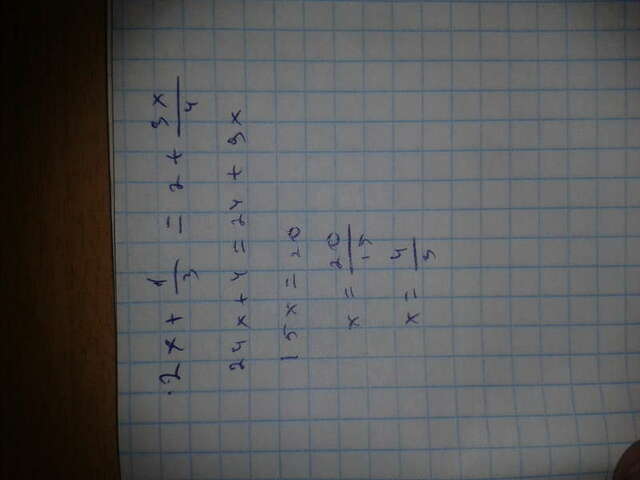 2x + 1/3 = 2 + 3x/4
24x + 4 = 24 + 9x
15x = 20
x = 20/15
x = 4/3